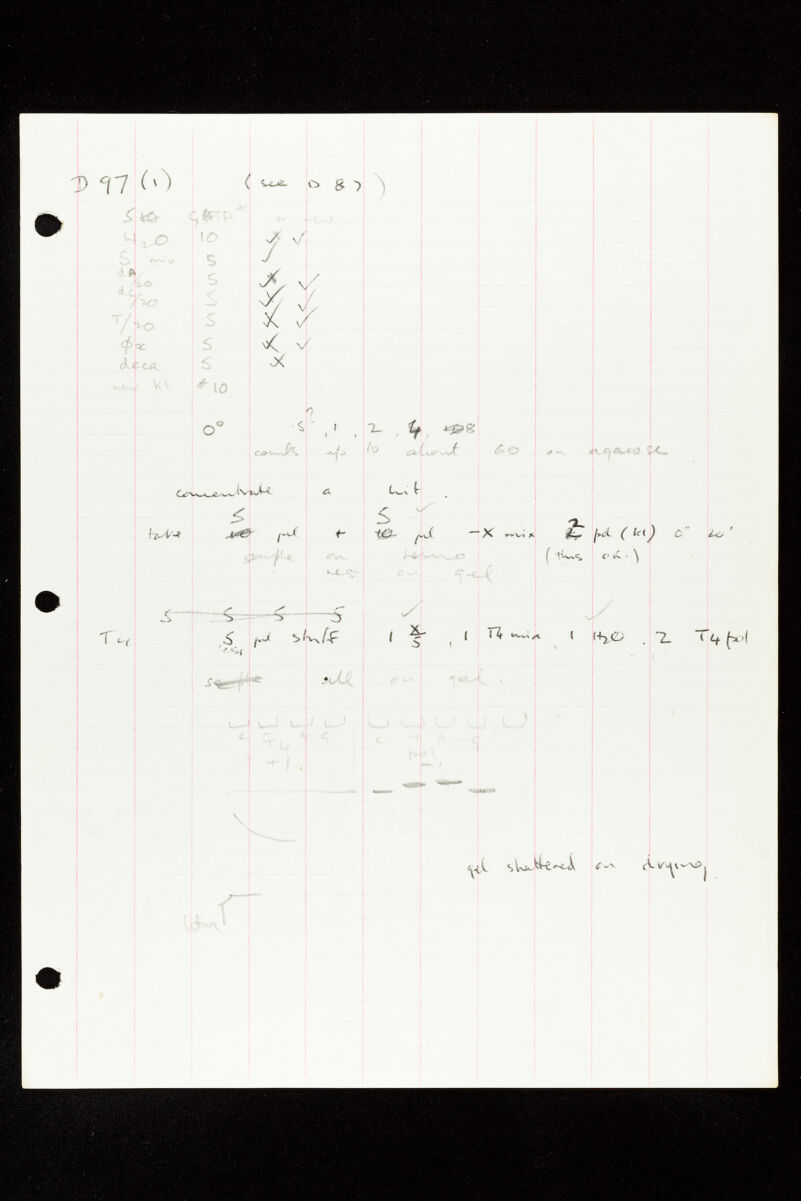 D 97 (1) (see D 87)
5 GATP* or new
H2O 10
S mix 5
dA/20 5
dC/20 5
T/20 5
φx 5
deca 5
new Kl 10
0° .5?, 1, 2, 4, 8
counts up to about 60 on agarose
concentrate a bit.
5 5
take 10 μl + 10 μl -X mix 2 μl (Kl) 0° 20'
sample on
(this ok.)
rest on gel
5 5 5 5
T4 5 μl stuff 1 X/5, 1 T4 mix, 1 H2O, 2 T4 pol
sample all on gel.
C T A G C T A G
T4 pol,
+1.
gel shattered on drying.